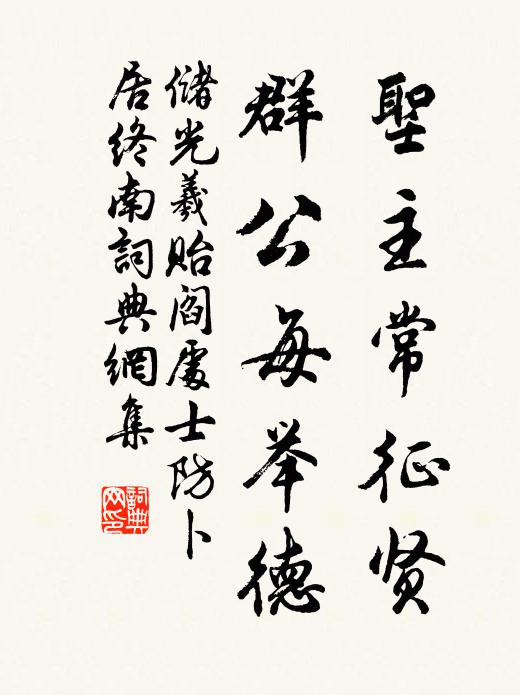 聖主常征贤
群公每举德
儲光羲貽閻處士防卜
居終南詞典網集
詞典
网印